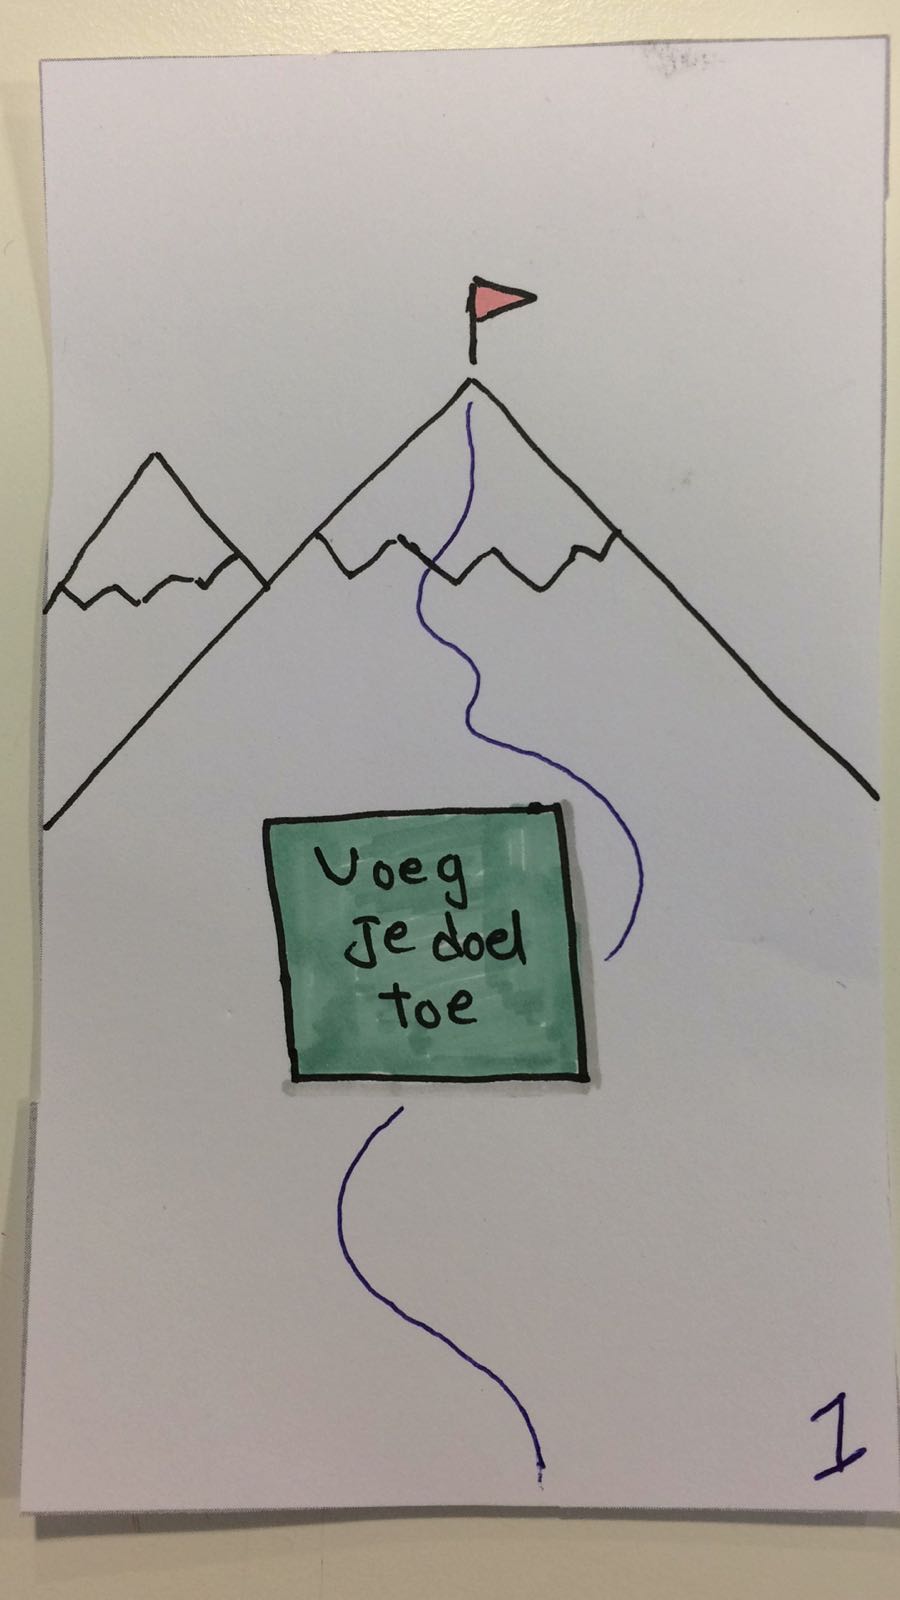 Voeg
Je doel
toe
1